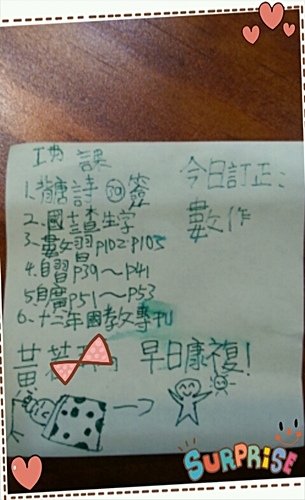 功課
1. 背唐詩 70 簽
2. 國
生字
3. 數習P102~P105
4. 自習P39~P41
5. 自廣P51~P53
6. 十二年國教專刊
今日訂正:
數作
黃
早日康復!
SURPRiSE